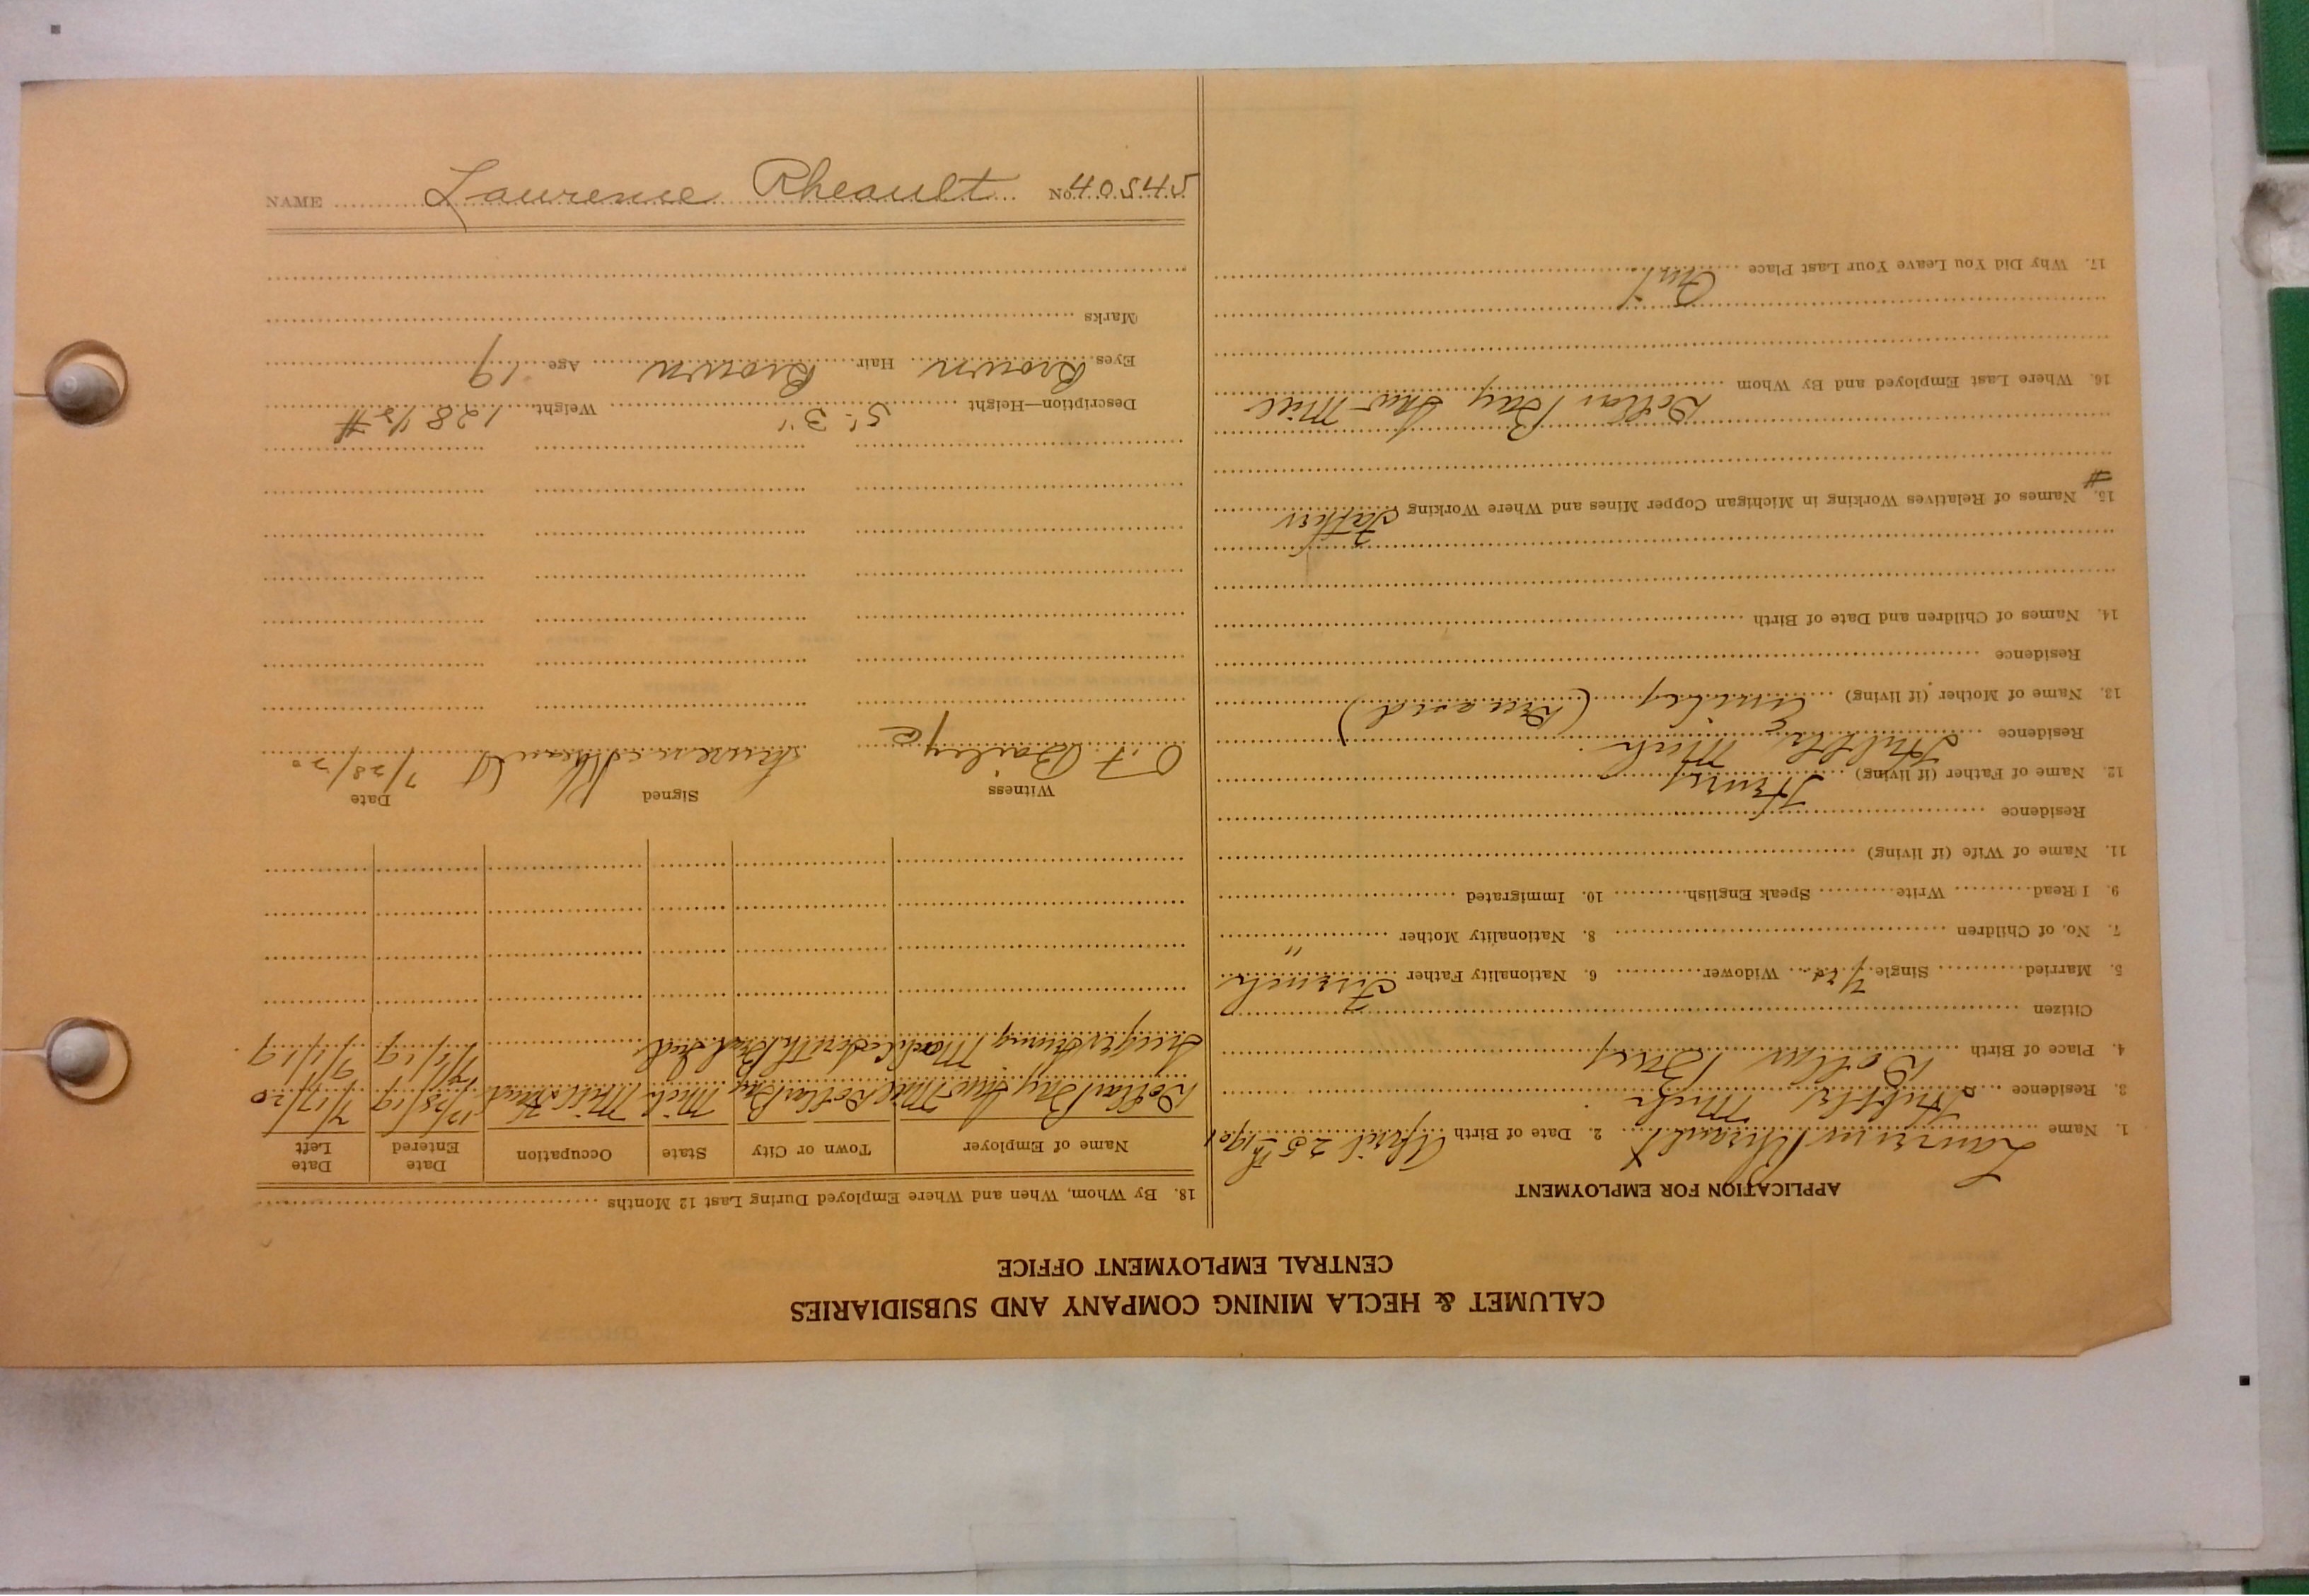 CALUMET & HECLA MINING COMPANY AND SUBSIDIARIES
CENTRAL EMPLOYMENT OFFICE
APPLICATION FOR EMPLOYMENT
1. Name Laurence Rheault 2. Date of Birth April 25th 1901
3. Residence Hubbell Mich
4. Place of Birth Dollar Bay
Citizen
5. Married Single yes Widower 6. Nationality Father French
7. No. of Children 8. Nationality Mother "
9. I Read Write Speak English 10. Immigrated
11. Name of Wife (if living)
Residence
12. Name of Father (if living) Henry
Residence Hubbell Mich.
13. Name of Mother (if living) Emiley
Residence
14. Names of Children and Date of Birth
15. Names of Relatives Working in Michigan Copper Mines and Where Working Father
#
16. Where Last Employed and By Whom
Dollar Bay Saw Mill
17. Why Did You Leave Your Last Place
Quit
18. By Whom, When and Where Employed During Last 12 Months
Name of Employer Town or City State Occupation Date Entered Date Left
Dollar Bay Saw Mill Dollar Bay Mich Mill Hand 12/28/19 7/17/20
7/1/19 9/1/19
Witness Signed Date
O.F. Bailey Laurence Rheault 7/28/20
Description—Height 5' 3" Weight 128 1/2 #
Eyes Brown Hair Brown Age 19
Marks
NAME Laurence Rheault No. 40545